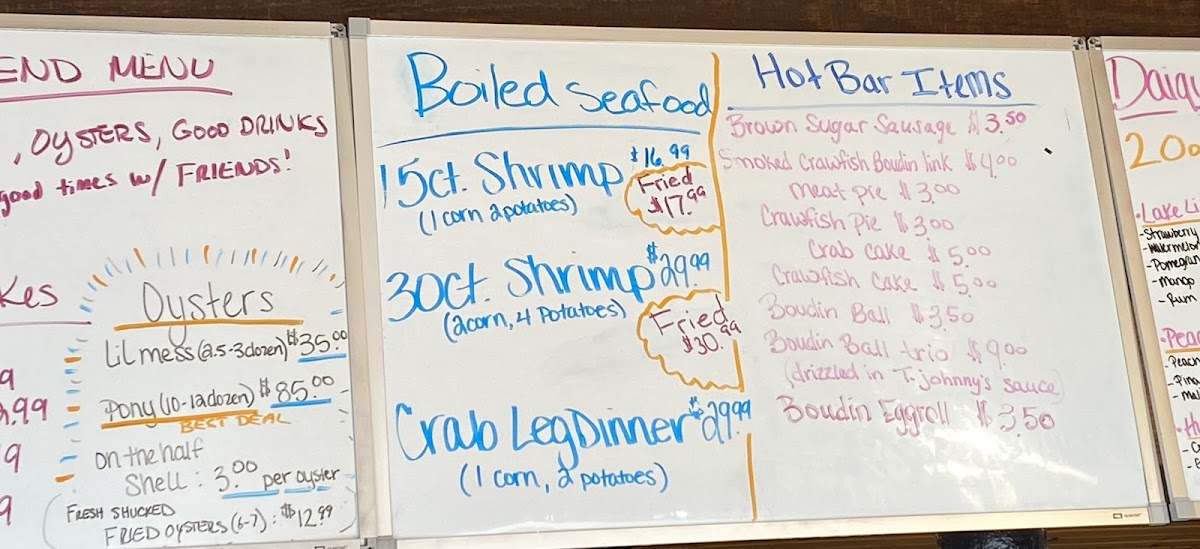 END MENU
, OYSTERS, GOOD DRINKS
good times w/ FRIENDS!
Kes
9
.99
9
9
Oysters
Lil mess (2.5-3dozen) $35.00
Pony (10-12dozen) $85.00
BEST DEAL
on the half
Shell: 3.00 per oyster
(FRESH SHUCKED
FRIED OYSTERS (6-7): $12.99
Boiled Seafood
15ct. Shrimp $16.99
(1 corn 2potatoes)
Fried
$17.99
30ct. Shrimp $29.99
(2corn, 4 Potatoes)
Fried
$30.99
Crab Leg Dinner $29.99
(1 corn, 2 potatoes)
Hot Bar Items
Brown Sugar Sausage $3.50
Smoked Crawfish Boudin link $4.00
meat pie $3.00
Crawfish Pie $3.00
Crab cake $5.00
Crawfish cake $5.00
Boudin Ball $3.50
Boudin Ball trio $9.00
(drizzled in T-Johnny's sauce)
Boudin Eggroll $3.50
Daiqu
20o
•Lake Li
-Strawberry
-Watermelon
-Pomegran
-mango
-Rum
•Peac
-Peach
-Pina
-mal